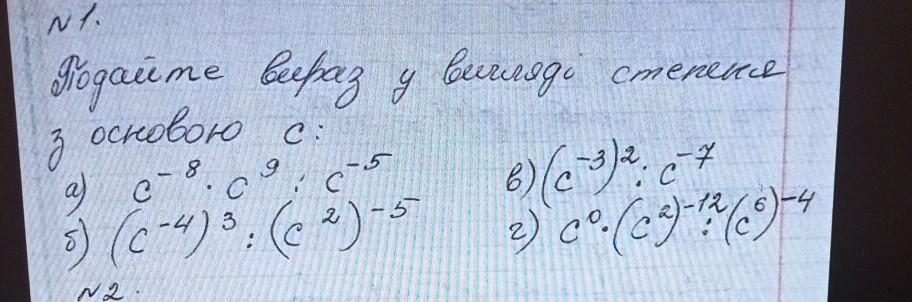 №1.
Подайте вираз у вигляді степеня
з основою с:
а) c⁻⁸ · c⁹ : c⁻⁵
в) (c⁻³)² : c⁻⁷
б) (c⁻⁴)³ : (c²)⁻⁵
г) c⁰ · (c²)⁻¹² : (c⁶)⁻⁴
№2.